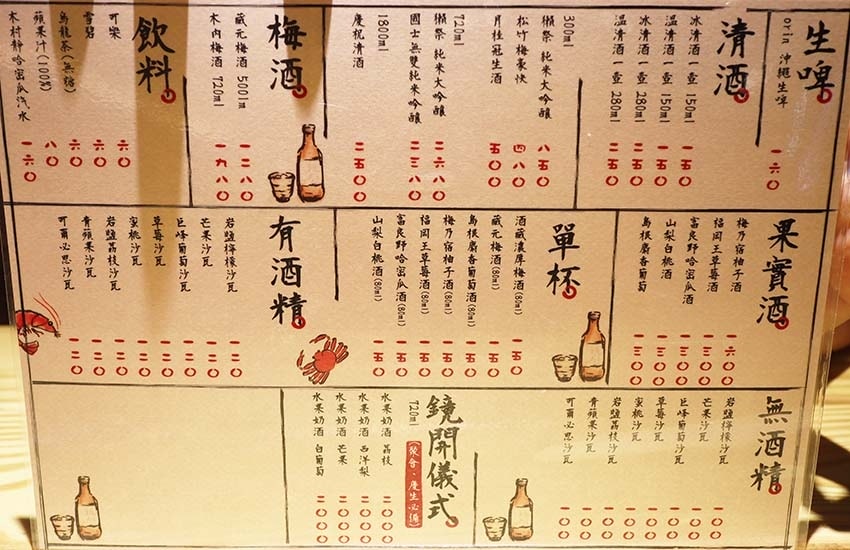 生啤
orin 沖繩生啤 一六〇
清酒
冰清酒一壺 150ml 一五〇
溫清酒一壺 150ml 一五〇
冰清酒一壺 280ml 二五〇
溫清酒一壺 280ml 二五〇
300ml
獺祭 純米大吟釀 八五〇
松竹梅豪快 四八〇
月桂冠生酒 五〇〇
720ml
獺祭 純米大吟釀 二六八〇
國士無雙純米吟釀 二三八〇
1800ml
慶祝清酒 二五〇〇
梅酒
藏元梅酒 500ml 一二八〇
木內梅酒 720ml 一九八〇
飲料
可樂 六〇
雪碧 六〇
烏龍茶(無糖) 六〇
蘋果汁(100%) 八〇
木村靜哈密瓜汽水 一六〇
果實酒
梅乃宿柚子酒 一六〇〇
福岡王草莓酒 一三〇〇
富良野哈密瓜酒 一三〇〇
山梨白桃酒 一三〇〇
島根麝香葡萄 一三〇〇
單杯
酒藏濃厚梅酒(80ml) 一五〇
藏元梅酒(80ml) 一五〇
島根麝香葡萄(80ml) 一五〇
梅乃宿柚子酒(80ml) 一五〇
福岡王草莓酒(80ml) 一五〇
富良野哈密瓜酒(80ml) 一五〇
山梨白桃酒(80ml) 一五〇
有酒精
岩鹽檸檬沙瓦 一二〇
芒果沙瓦 一二〇
巨峰葡萄沙瓦 一二〇
草莓沙瓦 一二〇
蜜桃沙瓦 一二〇
岩鹽荔枝沙瓦 一二〇
青蘋果沙瓦 一二〇
可爾必思沙瓦 一二〇
無酒精
岩鹽檸檬沙瓦 一〇〇
芒果沙瓦 一〇〇
巨峰葡萄沙瓦 一〇〇
草莓沙瓦 一〇〇
蜜桃沙瓦 一〇〇
岩鹽荔枝沙瓦 一〇〇
青蘋果沙瓦 一〇〇
可爾必思沙瓦 一〇〇
鏡開儀式
(聚會・慶生必備)
720ml
水果奶酒 荔枝 二〇〇〇
水果奶酒 西洋梨 二〇〇〇
水果奶酒 芒果 二〇〇〇
水果奶酒 白葡萄 二〇〇〇